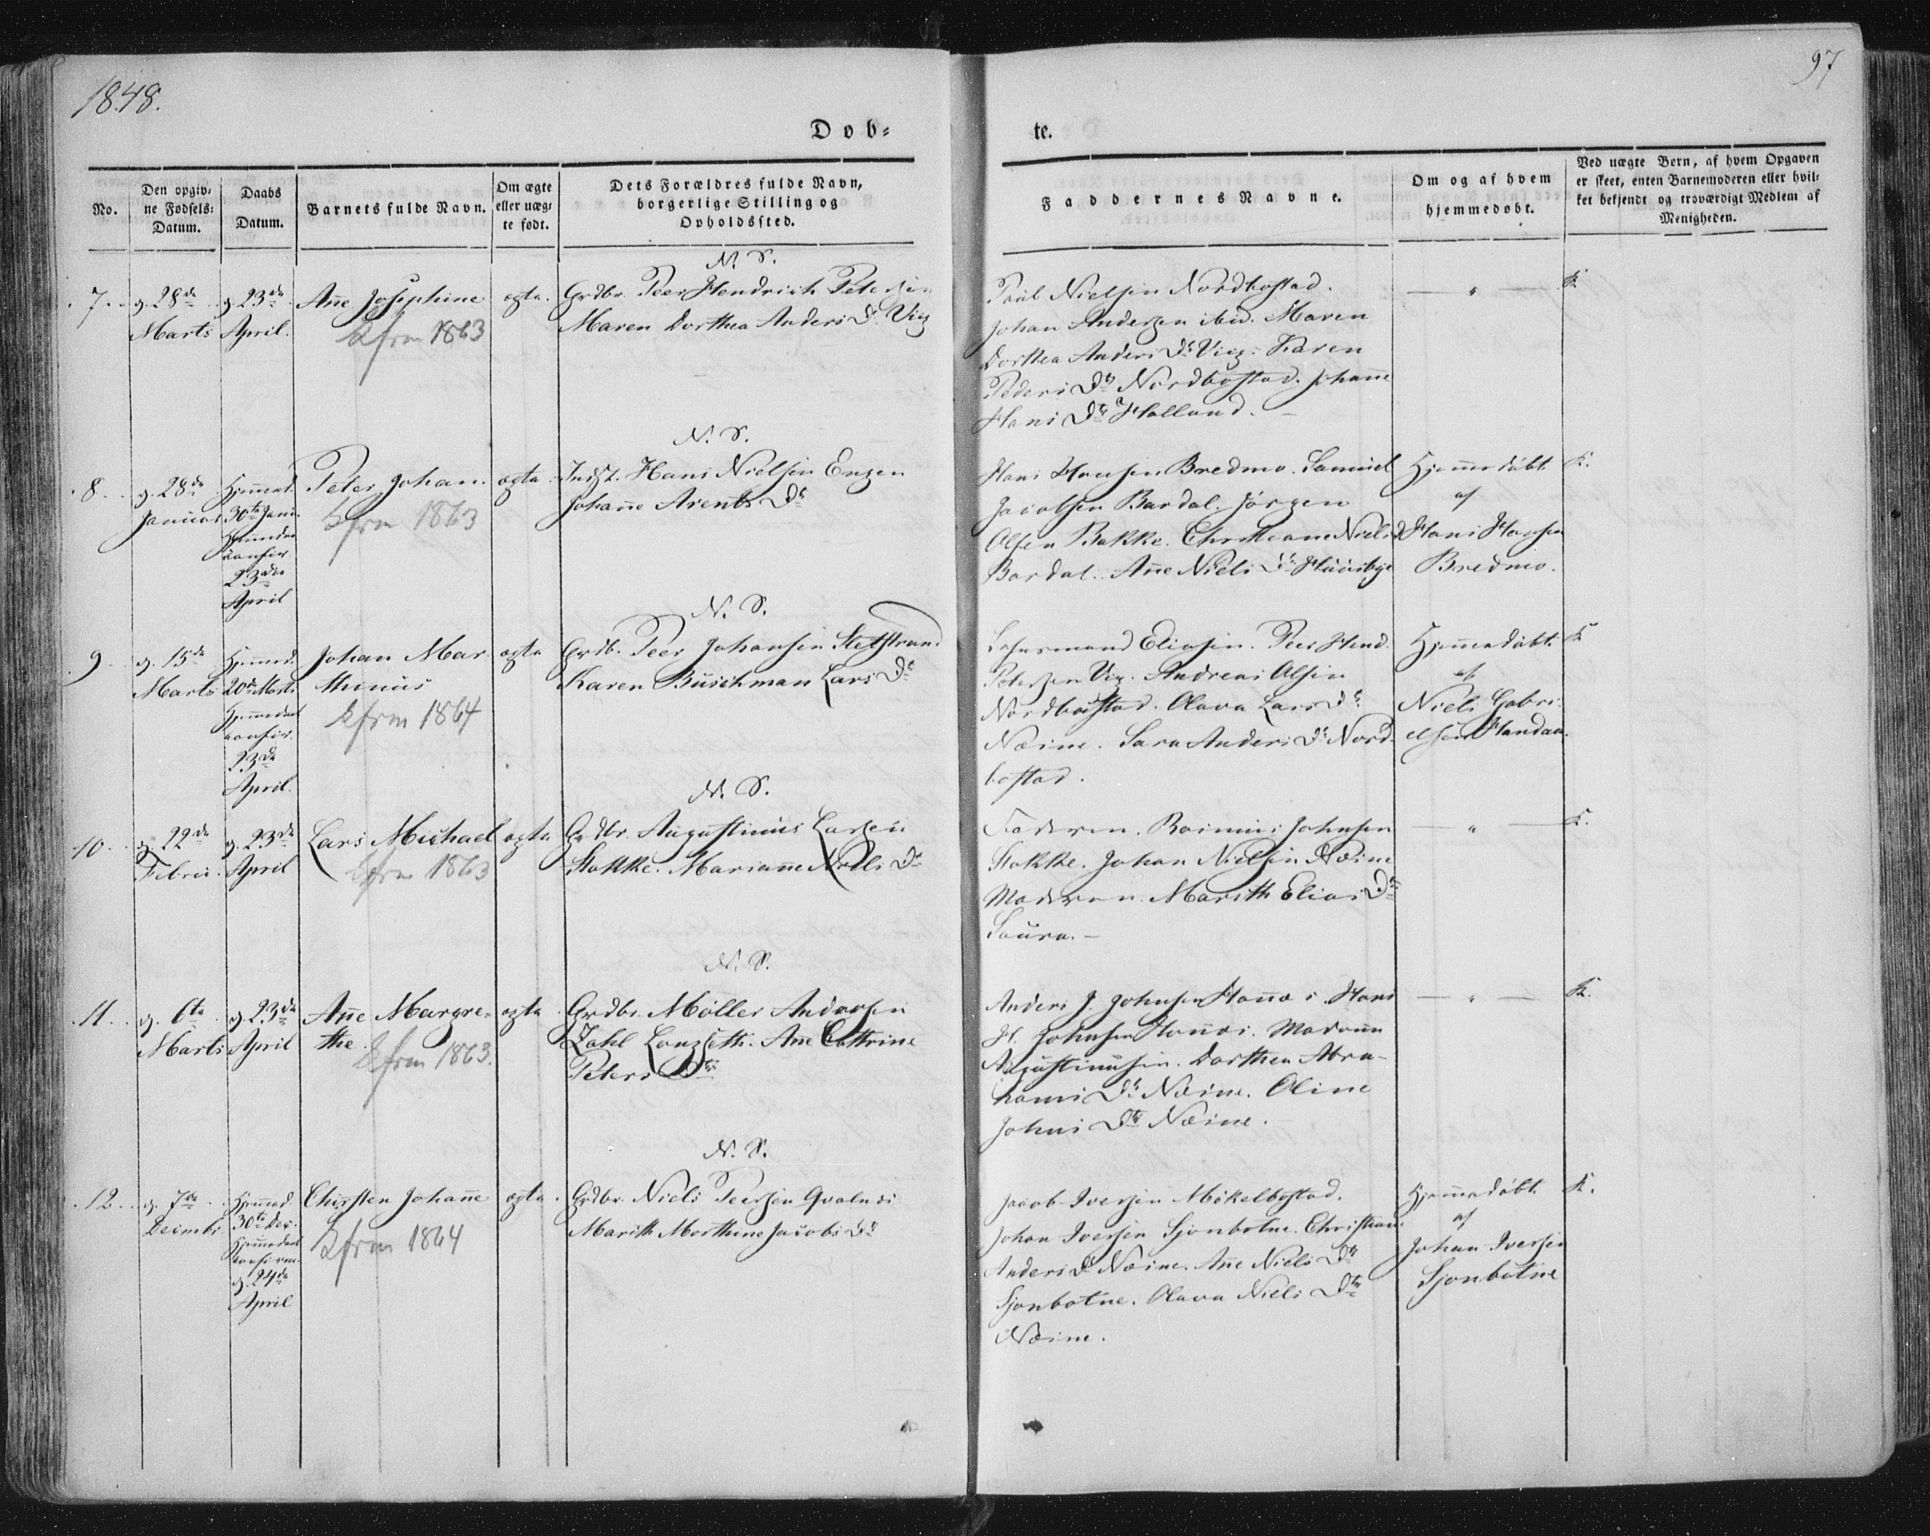 1848.
97
Dob-
te.
No.
Den opgiv-
ne Fødsels-
Datum.
Daabs
Datum.
Barnets fulde Navn.
Om ægte
eller uæg-
te født.
Dets Forældres fulde Navn,
borgerlige Stilling og
Opholdssted.
Faddernes Navne.
Om og af hvem
hjemmedøbt.
Ved uægte Børn, af hvem Opgaven
er skeet, enten Barnemoderen eller hvil-
ket bekjendt og troværdigt Medlem af
Menigheden.
N. S.
7. d. 28de Marts
d. 23de April.
Anne Josephine
kfrm 1863
ægte.
Grdbr. Peer Hendrich Petersen
Maren Dorthea Anders Dr. Vig
Paul Nielsen Nordbostad.
Johan Andersen ibid. Maren
Dorthea Anders Dr. Vig. Karen
Peders Dtr Nordbostad. Johanne
Hans Dtr Holland. —
— " —
K.
N. S.
8. d. 28de Januar
Hjemmed.
30te Janr.
Hjemmedaab
confir.
23de
April
Peter Johan.
kfrm 1863
ægte
Indst. Hans Nielsen Engen
Johanne Arents Dr
Hans Hansen Bredmo. Samuel
Jacobsen Bardal. Jørgen
Olsen Bakke. Christiane Niels D
Bardal. Anne Niels Dr Huusbye
Hjemmedøbt
af
Hans Hansen
Bredmo.
K.
N. S.
9. d. 15de Marts
Hjemmed.
20de Marts
Hjemmedaab
confir.
23de
April.
Johan Mar-
thinus
kfrm 1864
ægte
Grdb. Peer Johansen Sletstrand
Karen Buschman Lars Dr
Lehnsmand Eliasen. Peer Hend.
Petersen Vig. Andreas Olsen
Nordbostad. Olava Lars Dr
Næsne. Sara Anders Dr Nord-
bostad.
Hjemmedøbt
af
Niels Gabri-
elsen Handaa.
K
N. S.
10. d. 22de Febru.
d. 23de April
Lars Michael
kfrm 1863
ægte
Grdbr. Augustinus Larsen
Stokke. Marianne Niels Dr
Faderen. Rasmus Johnsen
Stokke. Johan Nielsen Næsne
Moderen. Marith Elias Dtr
Saura. —
— " —
K.
N. S.
11. d. 6te Marts
d. 23de April
Anne Margre-
the.
kfrm 1863.
ægte
Grdbr. Møller Andersen
Zahl Langseth. Anne Cathrine
Peters Dtr
Anders J. Johnsen Hannæs. Hans
H. Johnsen Hannæs. Madame
Augustinusen. Dorthea Abra-
hams Dr Næsne. Oline
Johns Dtr Næsne.
— " —
K.
N. S.
12. d. 7de Decembr
Hjemmed.
30te Dec.
Hjemmedaab
konfirm.
d. 24de
April
Chirsten Johanne
kfrm 1864
ægte.
Grdbr. Niels Peersen Qvalnæs
Marith Marthine Jacobs Dr
Jacob Iversen Mökelbostad.
Johan Iversen Sjonbotne. Christian
Anders D Næsne. Ane Niels Dr
Sjonbotne. Olava Niels Dtr
Næsne.
Hjemmedøbt
af
Johan Iversen
Sjonbotne
K.